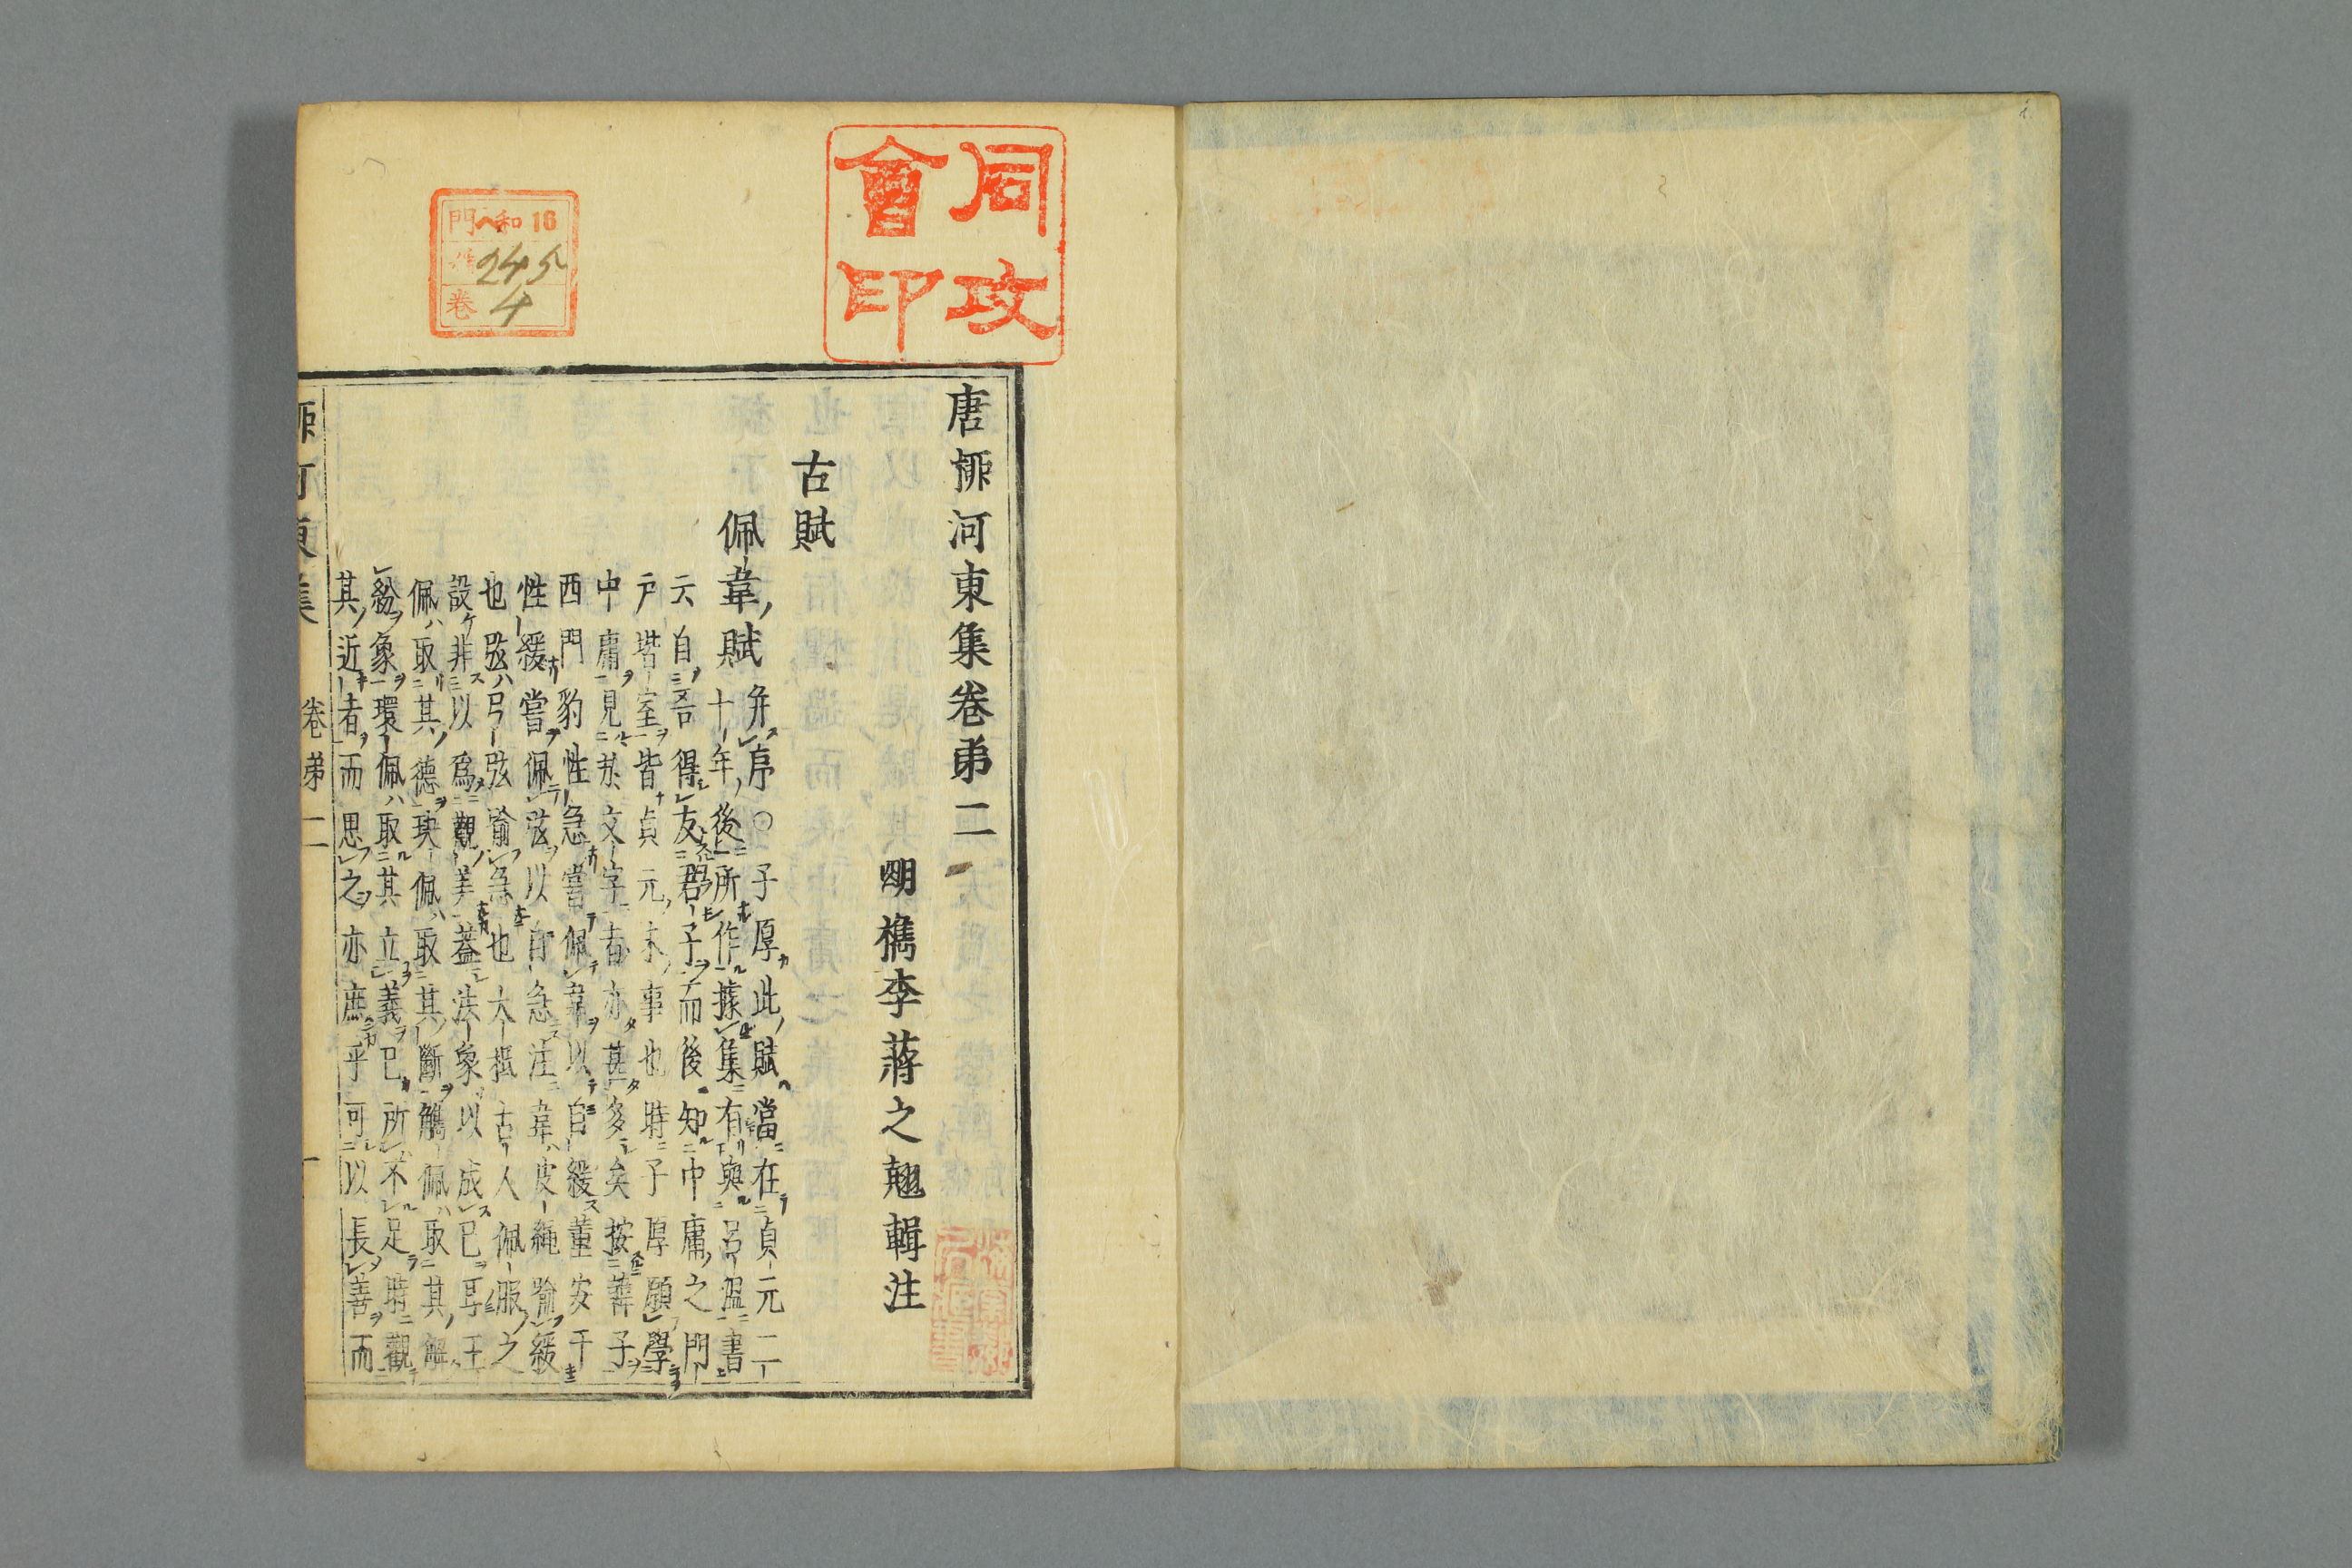 同攻
會印
門 ヘ和16
245
卷 4
唐栁河東集卷第二
明檇李蔣之翹輯注
古賦
佩韋賦
并序○子厚此賦當在貞元二
十年後所作據集有與呂溫書
云自吾得友君子而後知中庸之門
戶堦室皆貞元末事也時子厚願學
中庸見於文字者亦甚多矣按韓子
西門豹性急嘗佩韋以自緩董安于
性緩嘗佩弦以自急注韋皮繩喻緩
也弦弓弦喻急也大抵古人佩服之
設非以爲觀美蓋法象以成已耳玉
佩取其德玦佩取其斷觿佩取其解
紛象環佩取其立義已所不足時觀
其近者而思之亦庶乎可以長善而
栁河東集 卷第二 一